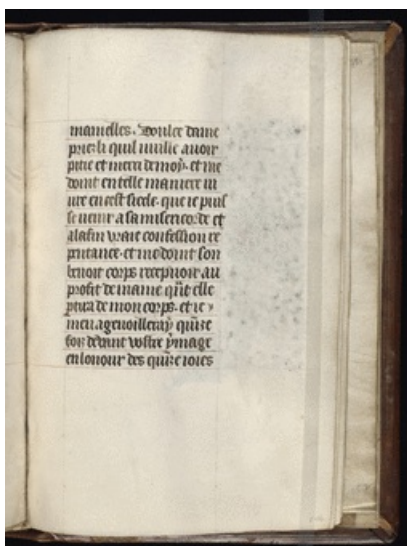 mamelles. Doulce dame
priez li quil vuille avoir
pitie et merci de moy. et me
doint en telle maniere vi
vre en cest siecle. que ie puis
se venir a sa misericorde et
a la fin vraie confession re
pentance. et me doint son
benoit corps recepvoir au
profit de mame qnt elle
ptira de mon corps. et ie
men agenoilleray quize
fois devant vostre ymage
en lonour des quize ioies